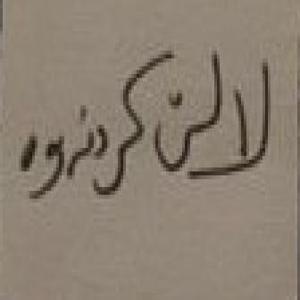 لا لێ کردنەوە